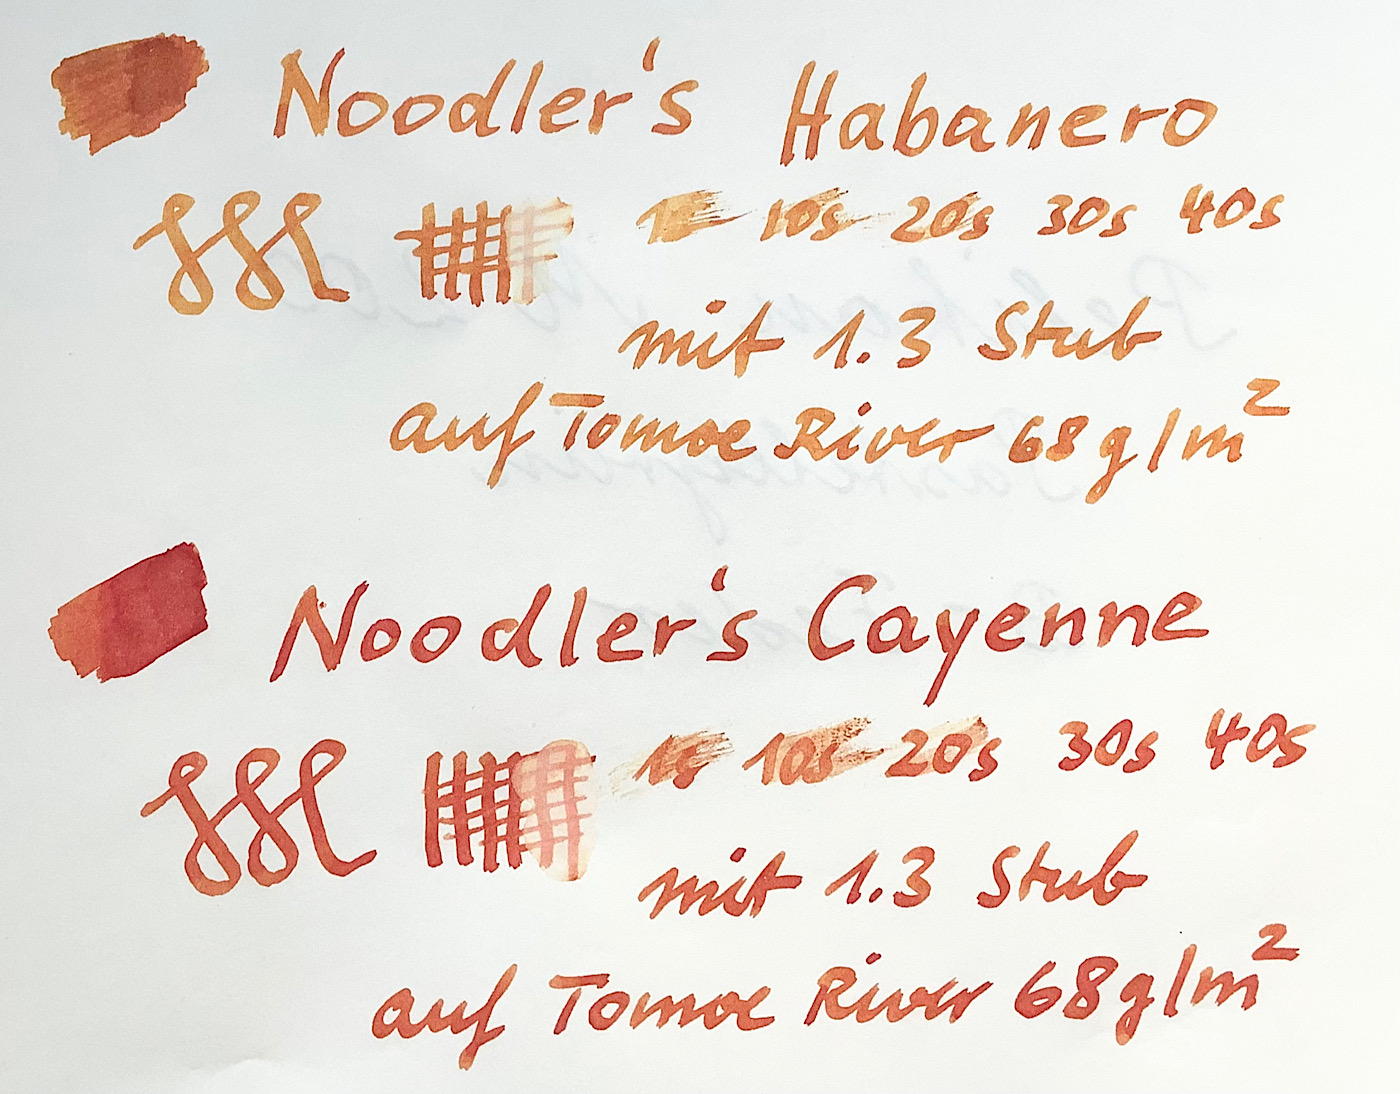 Noodler's Habanero
1s 10s 20s 30s 40s
mit 1.3 Stub
auf Tomoe River 68g/m²
Noodler's Cayenne
1s 10s 20s 30s 40s
mit 1.3 Stub
auf Tomoe River 68g/m²